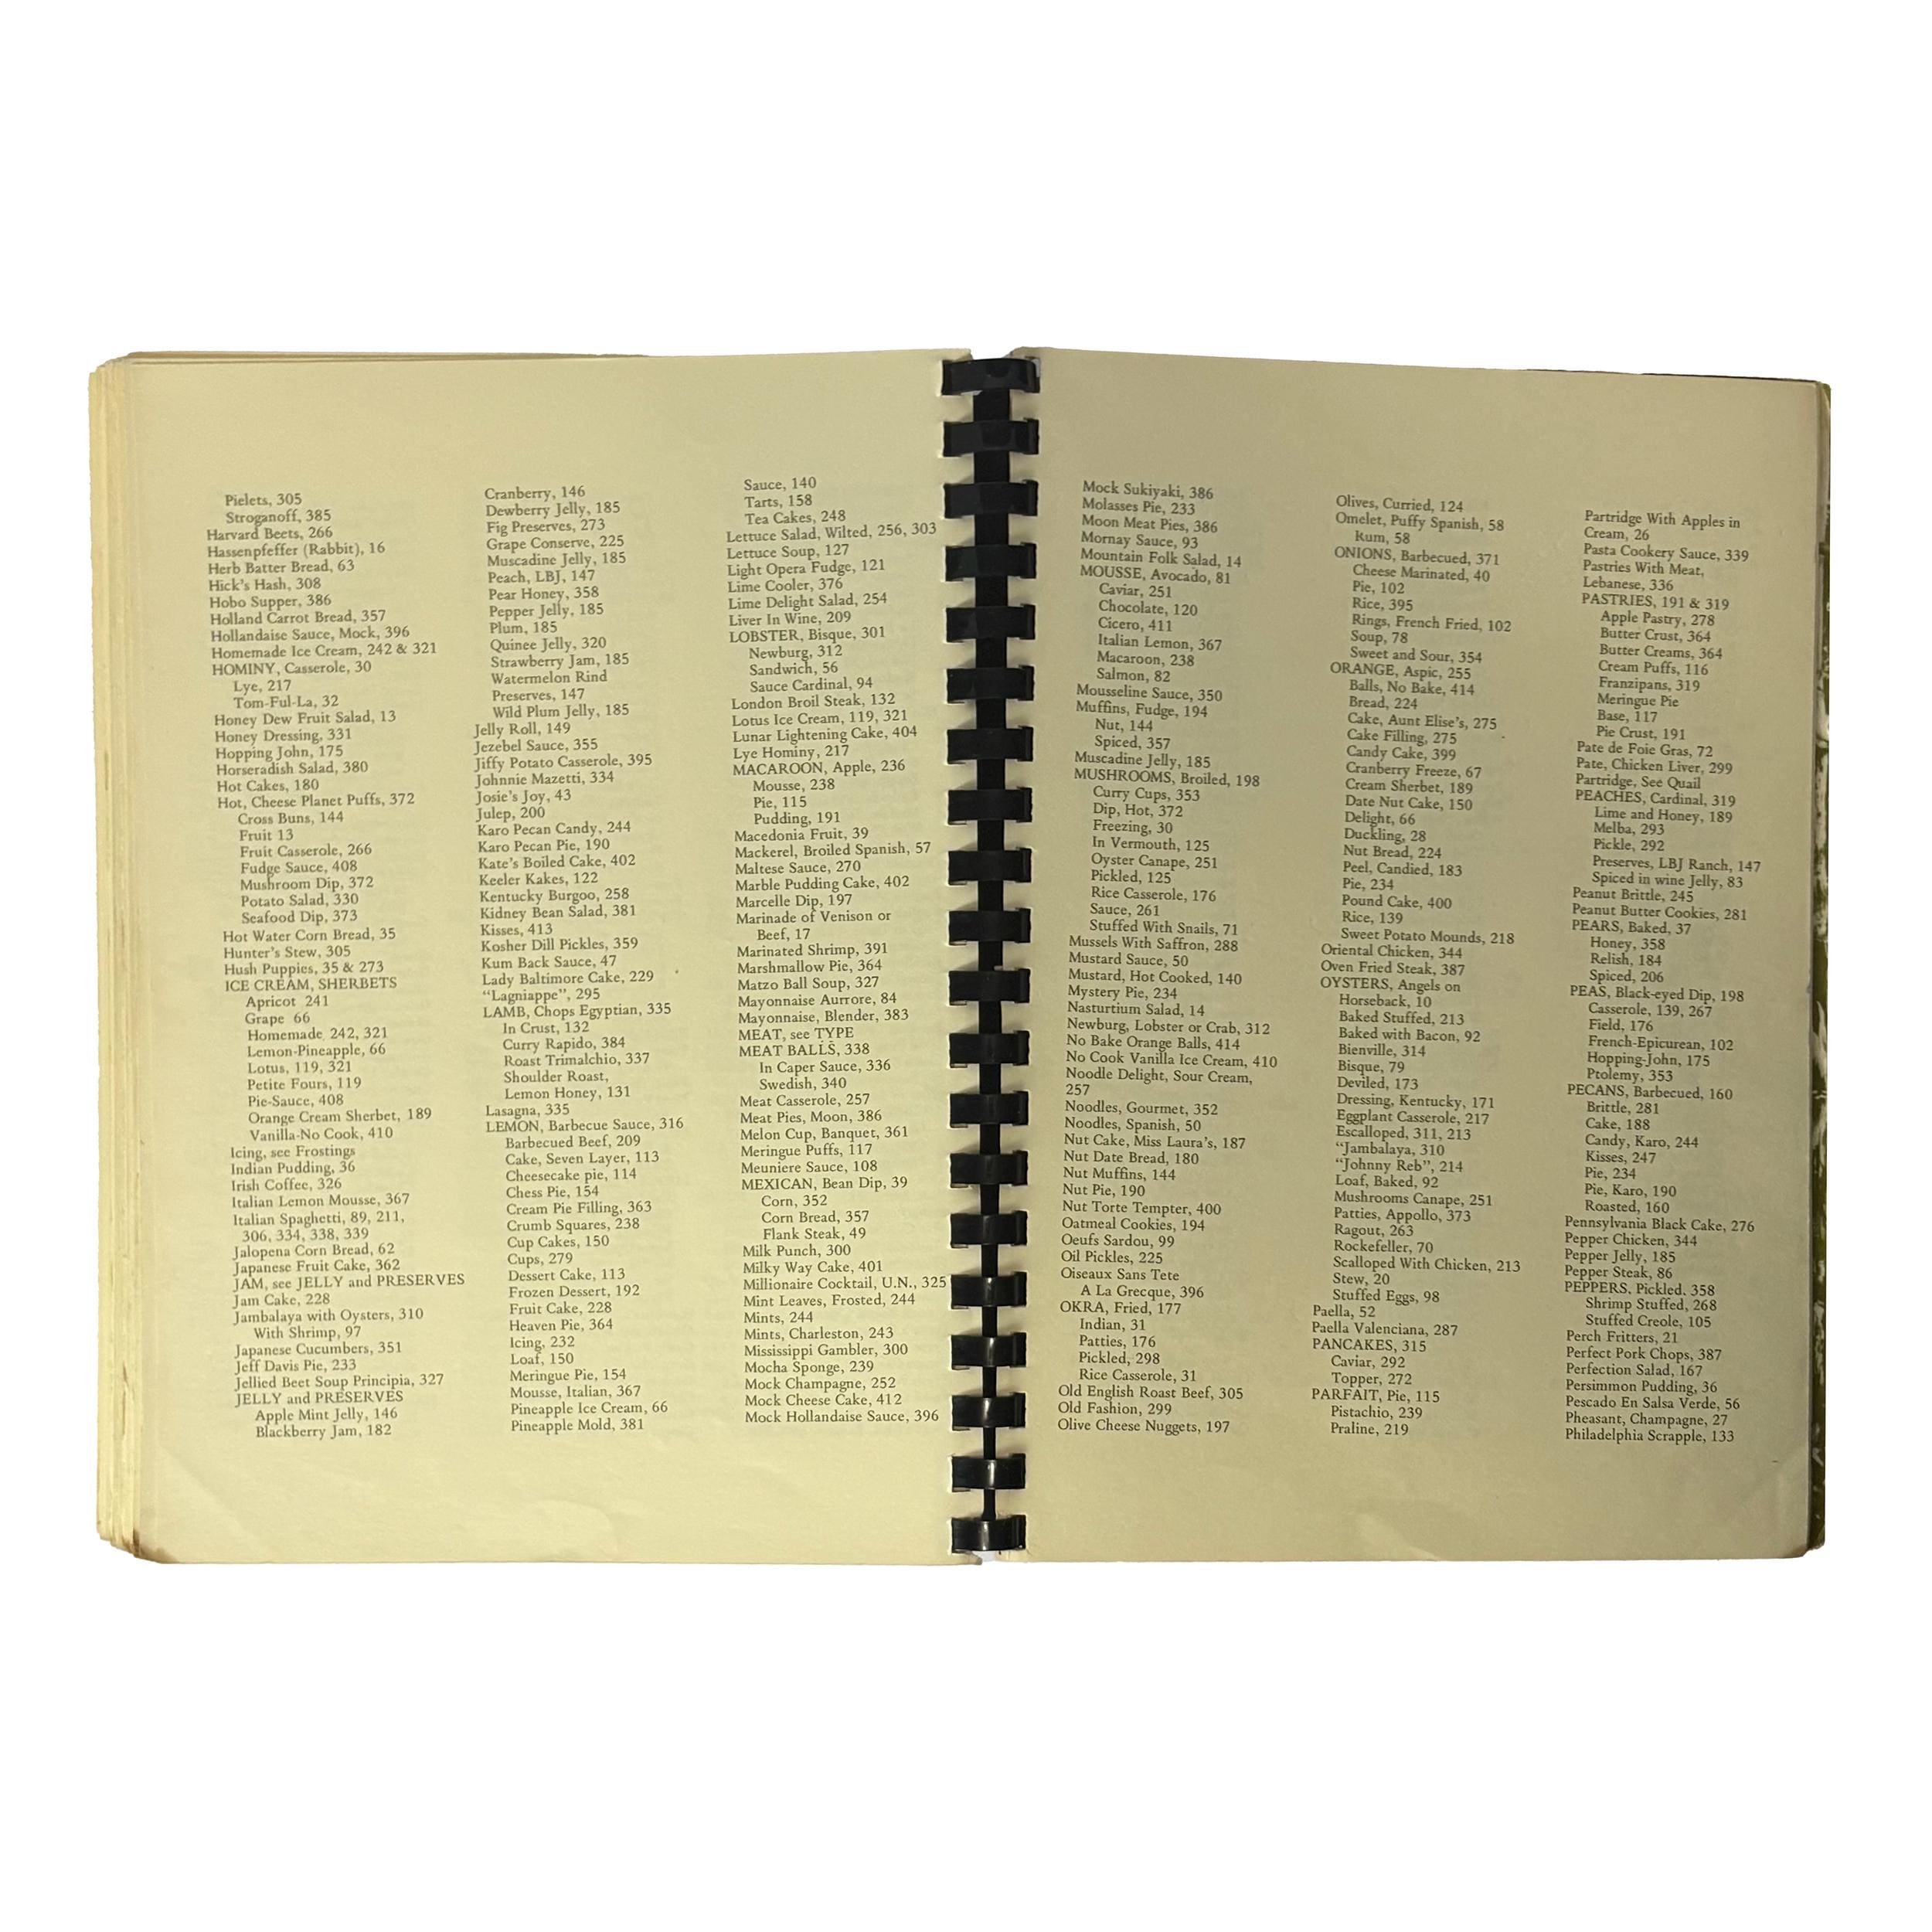 Pielets, 305
Stroganoff, 385
Harvard Beets, 266
Hassenpfeffer (Rabbit), 16
Herb Batter Bread, 63
Hick's Hash, 308
Hobo Supper, 386
Holland Carrot Bread, 357
Hollandaise Sauce, Mock, 396
Homemade Ice Cream, 242 & 321
HOMINY, Casserole, 30
Lye, 217
Tom-Ful-La, 32
Honey Dew Fruit Salad, 13
Honey Dressing, 331
Hopping John, 175
Horseradish Salad, 380
Hot Cakes, 180
Hot, Cheese Planet Puffs, 372
Cross Buns, 144
Fruit 13
Fruit Casserole, 266
Fudge Sauce, 408
Mushroom Dip, 372
Potato Salad, 330
Seafood Dip, 373
Hot Water Corn Bread, 35
Hunter's Stew, 305
Hush Puppies, 35 & 273
ICE CREAM, SHERBETS
Apricot 241
Grape 66
Homemade 242, 321
Lemon-Pineapple, 66
Lotus, 119, 321
Petite Fours, 119
Pie-Sauce, 408
Orange Cream Sherbet, 189
Vanilla-No Cook, 410
Icing, see Frostings
Indian Pudding, 36
Irish Coffee, 326
Italian Lemon Mousse, 367
Italian Spaghetti, 89, 211,
306, 334, 338, 339
Jalopena Corn Bread, 62
Japanese Fruit Cake, 362
JAM, see JELLY and PRESERVES
Jam Cake, 228
Jambalaya with Oysters, 310
With Shrimp, 97
Japanese Cucumbers, 351
Jeff Davis Pie, 233
Jellied Beet Soup Principia, 327
JELLY and PRESERVES
Apple Mint Jelly, 146
Blackberry Jam, 182
Cranberry, 146
Dewberry Jelly, 185
Fig Preserves, 273
Grape Conserve, 225
Muscadine Jelly, 185
Peach, LBJ, 147
Pear Honey, 358
Pepper Jelly, 185
Plum, 185
Quinee Jelly, 320
Strawberry Jam, 185
Watermelon Rind
Preserves, 147
Wild Plum Jelly, 185
Jelly Roll, 149
Jezebel Sauce, 355
Jiffy Potato Casserole, 395
Johnnie Mazetti, 334
Josie's Joy, 43
Julep, 200
Karo Pecan Candy, 244
Karo Pecan Pie, 190
Kate's Boiled Cake, 402
Keeler Kakes, 122
Kentucky Burgoo, 258
Kidney Bean Salad, 381
Kisses, 413
Kosher Dill Pickles, 359
Kum Back Sauce, 47
Lady Baltimore Cake, 229
"Lagniappe", 295
LAMB, Chops Egyptian, 335
In Crust, 132
Curry Rapido, 384
Roast Trimalchio, 337
Shoulder Roast,
Lemon Honey, 131
Lasagna, 335
LEMON, Barbecue Sauce, 316
Barbecued Beef, 209
Cake, Seven Layer, 113
Cheesecake pie, 114
Chess Pie, 154
Cream Pie Filling, 363
Crumb Squares, 238
Cup Cakes, 150
Cups, 279
Dessert Cake, 113
Frozen Dessert, 192
Fruit Cake, 228
Heaven Pie, 364
Icing, 232
Loaf, 150
Meringue Pie, 154
Mousse, Italian, 367
Pineapple Ice Cream, 66
Pineapple Mold, 381
Sauce, 140
Tarts, 158
Tea Cakes, 248
Lettuce Salad, Wilted, 256, 303
Lettuce Soup, 127
Light Opera Fudge, 121
Lime Cooler, 376
Lime Delight Salad, 254
Liver In Wine, 209
LOBSTER, Bisque, 301
Newburg, 312
Sandwich, 56
Sauce Cardinal, 94
London Broil Steak, 132
Lotus Ice Cream, 119, 321
Lunar Lightening Cake, 404
Lye Hominy, 217
MACAROON, Apple, 236
Mousse, 238
Pie, 115
Pudding, 191
Macedonia Fruit, 39
Mackerel, Broiled Spanish, 57
Maltese Sauce, 270
Marble Pudding Cake, 402
Marcelle Dip, 197
Marinade of Venison or
Beef, 17
Marinated Shrimp, 391
Marshmallow Pie, 364
Matzo Ball Soup, 327
Mayonnaise Aurrore, 84
Mayonnaise, Blender, 383
MEAT, see TYPE
MEAT BALLS, 338
In Caper Sauce, 336
Swedish, 340
Meat Casserole, 257
Meat Pies, Moon, 386
Melon Cup, Banquet, 361
Meringue Puffs, 117
Meuniere Sauce, 108
MEXICAN, Bean Dip, 39
Corn, 352
Corn Bread, 357
Flank Steak, 49
Milk Punch, 300
Milky Way Cake, 401
Millionaire Cocktail, U.N., 325
Mint Leaves, Frosted, 244
Mints, 244
Mints, Charleston, 243
Mississippi Gambler, 300
Mocha Sponge, 239
Mock Champagne, 252
Mock Cheese Cake, 412
Mock Hollandaise Sauce, 396
Mock Sukiyaki, 386
Molasses Pie, 233
Moon Meat Pies, 386
Mornay Sauce, 93
Mountain Folk Salad, 14
MOUSSE, Avocado, 81
Caviar, 251
Chocolate, 120
Cicero, 411
Italian Lemon, 367
Macaroon, 238
Salmon, 82
Mousseline Sauce, 350
Muffins, Fudge, 194
Nut, 144
Spiced, 357
Muscadine Jelly, 185
MUSHROOMS, Broiled, 198
Curry Cups, 353
Dip, Hot, 372
Freezing, 30
In Vermouth, 125
Oyster Canape, 251
Pickled, 125
Rice Casserole, 176
Sauce, 261
Stuffed With Snails, 71
Mussels With Saffron, 288
Mustard Sauce, 50
Mustard, Hot Cooked, 140
Mystery Pie, 234
Nasturtium Salad, 14
Newburg, Lobster or Crab, 312
No Bake Orange Balls, 414
No Cook Vanilla Ice Cream, 410
Noodle Delight, Sour Cream,
257
Noodles, Gourmet, 352
Noodles, Spanish, 50
Nut Cake, Miss Laura's, 187
Nut Date Bread, 180
Nut Muffins, 144
Nut Pie, 190
Nut Torte Tempter, 400
Oatmeal Cookies, 194
Oeufs Sardou, 99
Oil Pickles, 225
Oiseaux Sans Tete
A La Grecque, 396
OKRA, Fried, 177
Indian, 31
Patties, 176
Pickled, 298
Rice Casserole, 31
Old English Roast Beef, 305
Old Fashion, 299
Olive Cheese Nuggets, 197
Olives, Curried, 124
Omelet, Puffy Spanish, 58
Rum, 58
ONIONS, Barbecued, 371
Cheese Marinated, 40
Pie, 102
Rice, 395
Rings, French Fried, 102
Soup, 78
Sweet and Sour, 354
ORANGE, Aspic, 255
Balls, No Bake, 414
Bread, 224
Cake, Aunt Elise's, 275
Cake Filling, 275
Candy Cake, 399
Cranberry Freeze, 67
Cream Sherbet, 189
Date Nut Cake, 150
Delight, 66
Duckling, 28
Nut Bread, 224
Peel, Candied, 183
Pie, 234
Pound Cake, 400
Rice, 139
Sweet Potato Mounds, 218
Oriental Chicken, 344
Oven Fried Steak, 387
OYSTERS, Angels on
Horseback, 10
Baked Stuffed, 213
Baked with Bacon, 92
Bienville, 314
Bisque, 79
Deviled, 173
Dressing, Kentucky, 171
Eggplant Casserole, 217
Escalloped, 311, 213
"Jambalaya, 310
"Johnny Reb", 214
Loaf, Baked, 92
Mushrooms Canape, 251
Patties, Appollo, 373
Ragout, 263
Rockefeller, 70
Scalloped With Chicken, 213
Stew, 20
Stuffed Eggs, 98
Paella, 52
Paella Valenciana, 287
PANCAKES, 315
Caviar, 292
Topper, 272
PARFAIT, Pie, 115
Pistachio, 239
Praline, 219
Partridge With Apples in
Cream, 26
Pasta Cookery Sauce, 339
Pastries With Meat,
Lebanese, 336
PASTRIES, 191 & 319
Apple Pastry, 278
Butter Crust, 364
Butter Creams, 364
Cream Puffs, 116
Franzipans, 319
Meringue Pie
Base, 117
Pie Crust, 191
Pate de Foie Gras, 72
Pate, Chicken Liver, 299
Partridge, See Quail
PEACHES, Cardinal, 319
Lime and Honey, 189
Melba, 293
Pickle, 292
Preserves, LBJ Ranch, 147
Spiced in wine Jelly, 83
Peanut Brittle, 245
Peanut Butter Cookies, 281
PEARS, Baked, 37
Honey, 358
Relish, 184
Spiced, 206
PEAS, Black-eyed Dip, 198
Casserole, 139, 267
Field, 176
French-Epicurean, 102
Hopping-John, 175
Ptolemy, 353
PECANS, Barbecued, 160
Brittle, 281
Cake, 188
Candy, Karo, 244
Kisses, 247
Pie, 234
Pie, Karo, 190
Roasted, 160
Pennsylvania Black Cake, 276
Pepper Chicken, 344
Pepper Jelly, 185
Pepper Steak, 86
PEPPERS, Pickled. 358
Shrimp Stuffed, 268
Stuffed Creole, 105
Perch Fritters, 21
Perfect Pork Chops, 387
Perfection Salad, 167
Persimmon Pudding, 36
Pescado En Salsa Verde, 56
Pheasant, Champagne, 27
Philadelphia Scrapple, 133